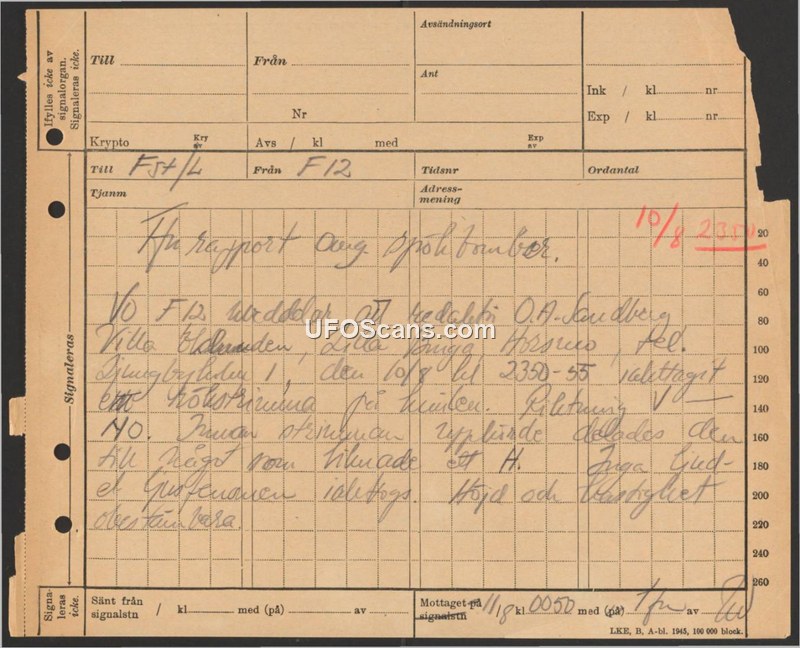 Ifylles icke av
signalorgan.
Signaleras icke.
Till
Från
Avsändningsort
Ant
Ink / kl nr
Nr
Exp / kl nr
Krypto
Kry
av
Avs / kl med
Exp
av
Till Fst/L
Från F12
Tidsnr
Ordantal
Tjanm
Adress-
mening
10/8 2350
Tfn rapport ang. spökbomber.
VO F12 meddelar att redaktör O.A. Sandberg
Villa Lilla Hossmo, tel.
Ljungbyholm 1, den 10/8 kl 2350-55 iakttagit
en rökstrimma på himlen. Riktning V —
NO. Innan strimman upplöste delades den
till något som liknade ett H. Inga ljud-
el ljusfenomen iakttogs. Höjd och hastighet
obestämbara.
20
40
60
80
100
120
140
160
180
200
220
240
260
Signaleras
UFOScans.com
Signa-
leras
icke.
Sänt från
signalstn / kl med (på) av
Mottaget på
signalstn 11/8 kl 0050 med (på) tfn av
LKE, B, A-bl. 1945, 100 000 block.